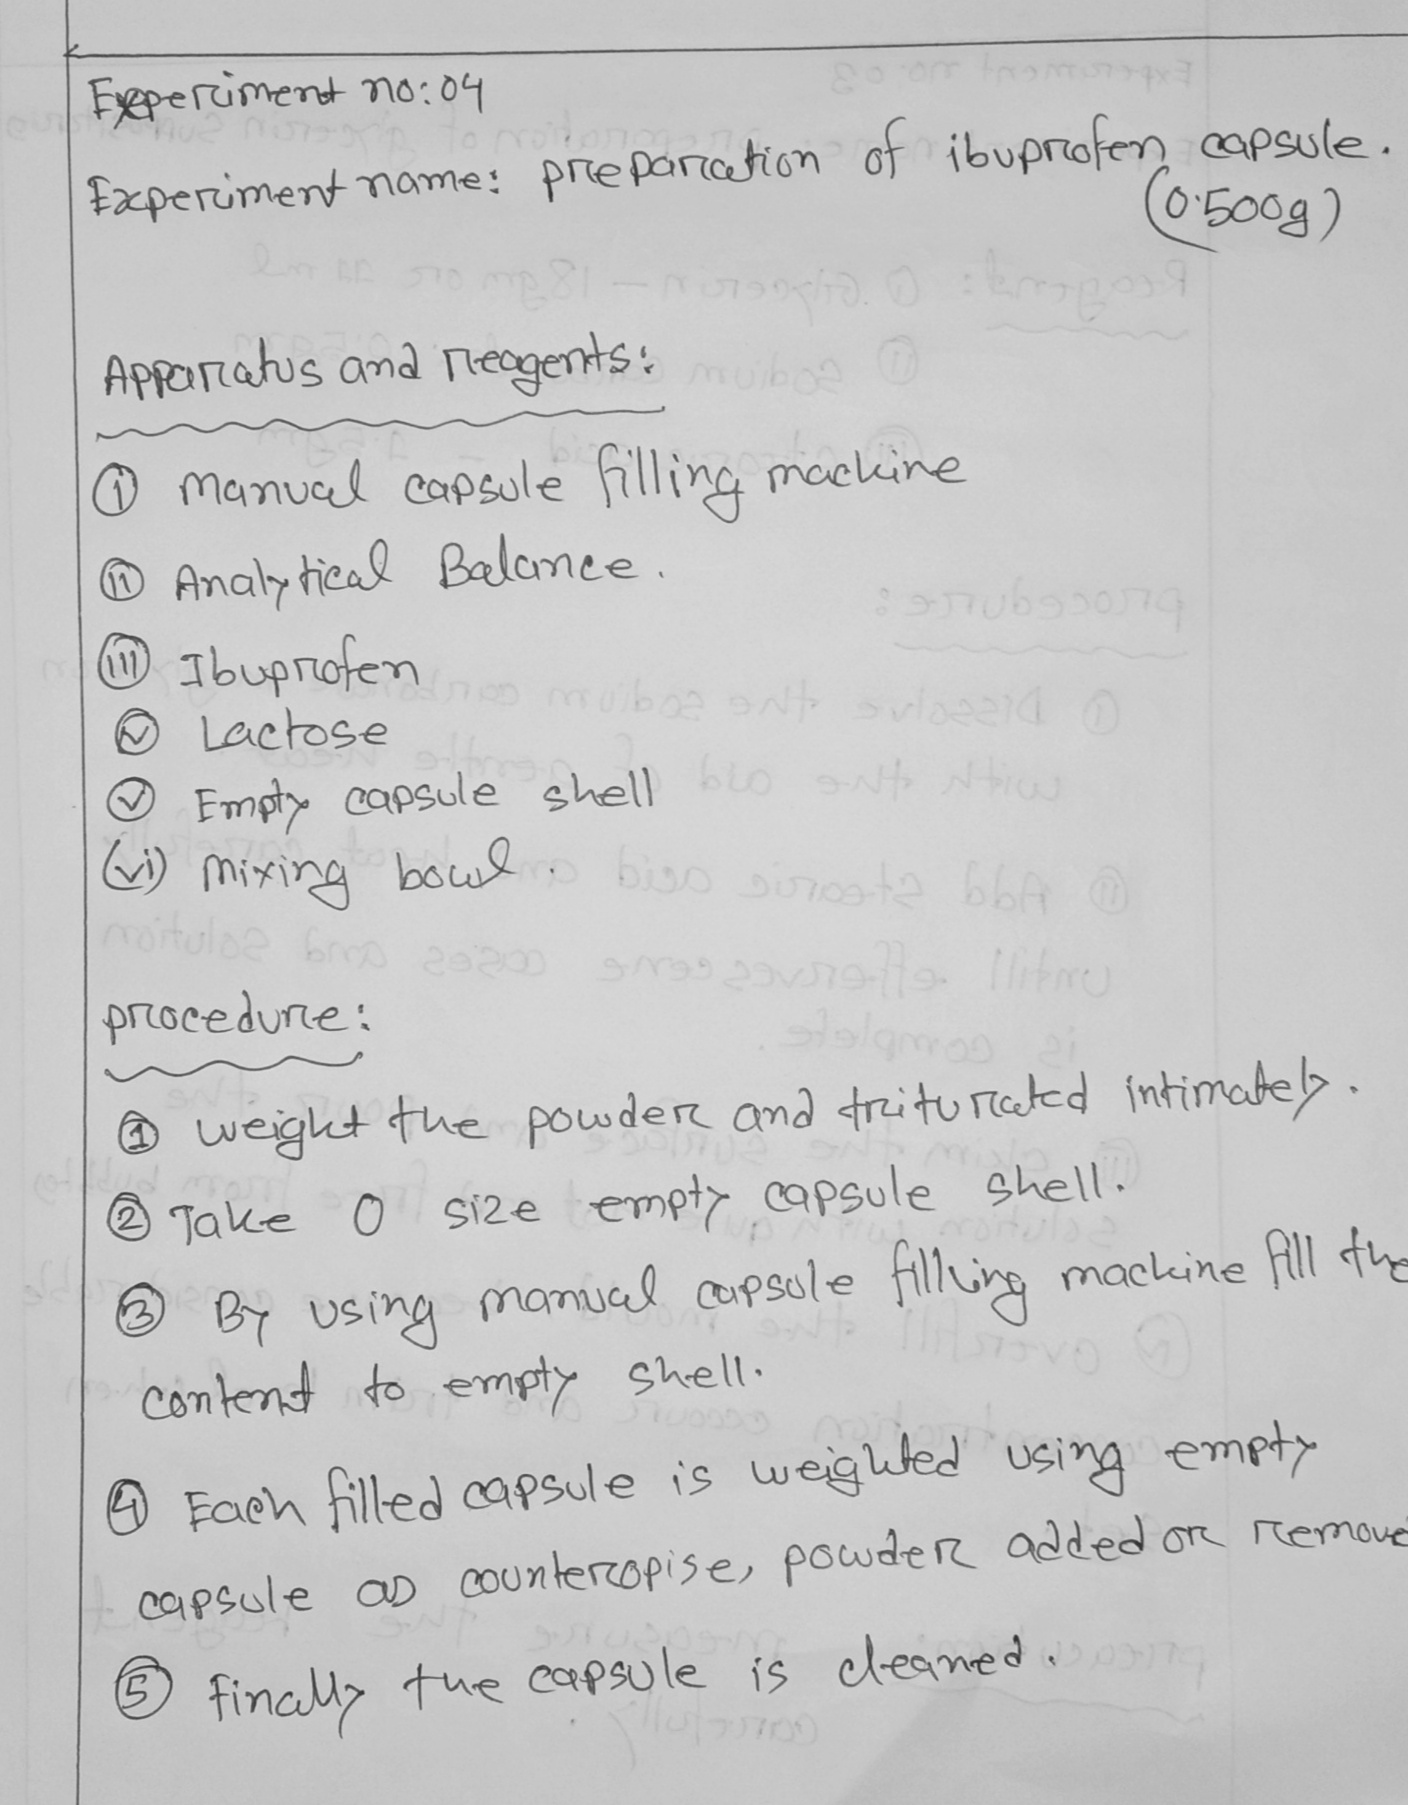 Experiment no: 04
Experiment name: preparation of ibuprofen capsule.
(0.500g)
Apparatus and reagents:
(i) Manual capsule filling machine
(ii) Analytical Balance.
(iii) Ibuprofen
(iv) Lactose
(v) Empty capsule shell
(vi) Mixing bowl.
procedure:
(1) weight the powder and triturated intimately.
(2) Take 0 size empty capsule shell.
(3) By using manual capsule filling machine fill the
content to empty shell.
(4) Each filled capsule is weighted using empty
capsule as counteropise, powder added or remove
(5) Finally the capsule is cleaned.